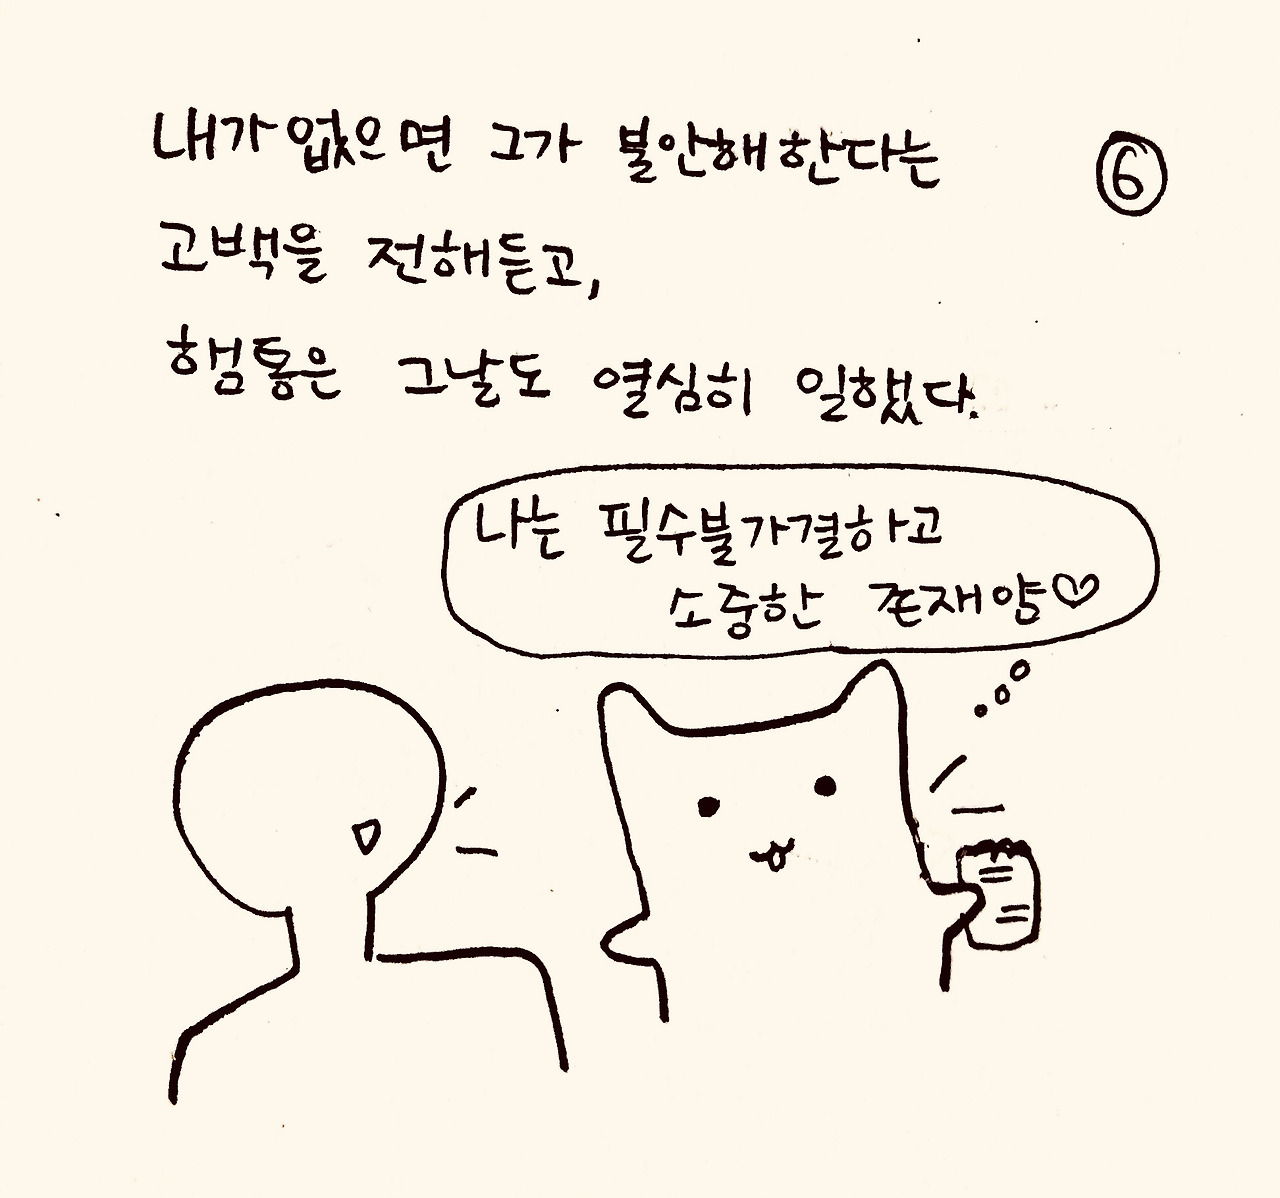 내가 없으면 그가 불안해 한다는
⑥
고백을 전해듣고,
햄톨은 그날도 열심히 일했다.
나는 필수불가결하고
소중한 존재얌♡